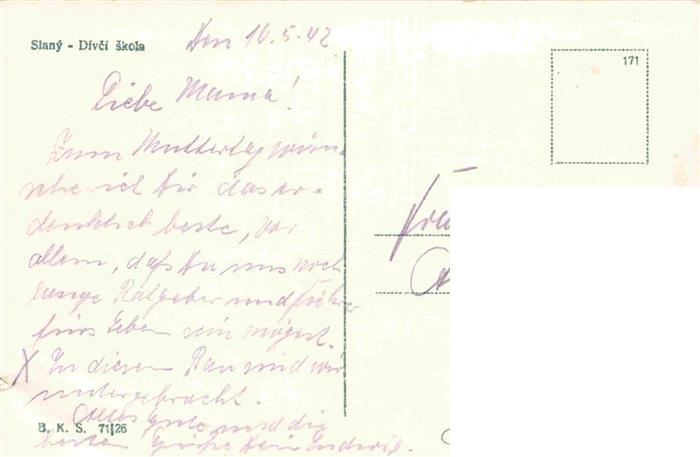 Slaný - Dívčí škola
Den 10.5.42
171
Liebe Mama!
Zum Muttertag wün-
sche ich Dir das er-
denklich beste, vor
allem, daß Du uns noch
lange Ratgeber und Führer
fürs Leben sein mögest.
X In diesem Bau sind wir
untergebracht.
Alles Gute und die
besten Grüße Dein Ludwig.
B. K. S. 71|26